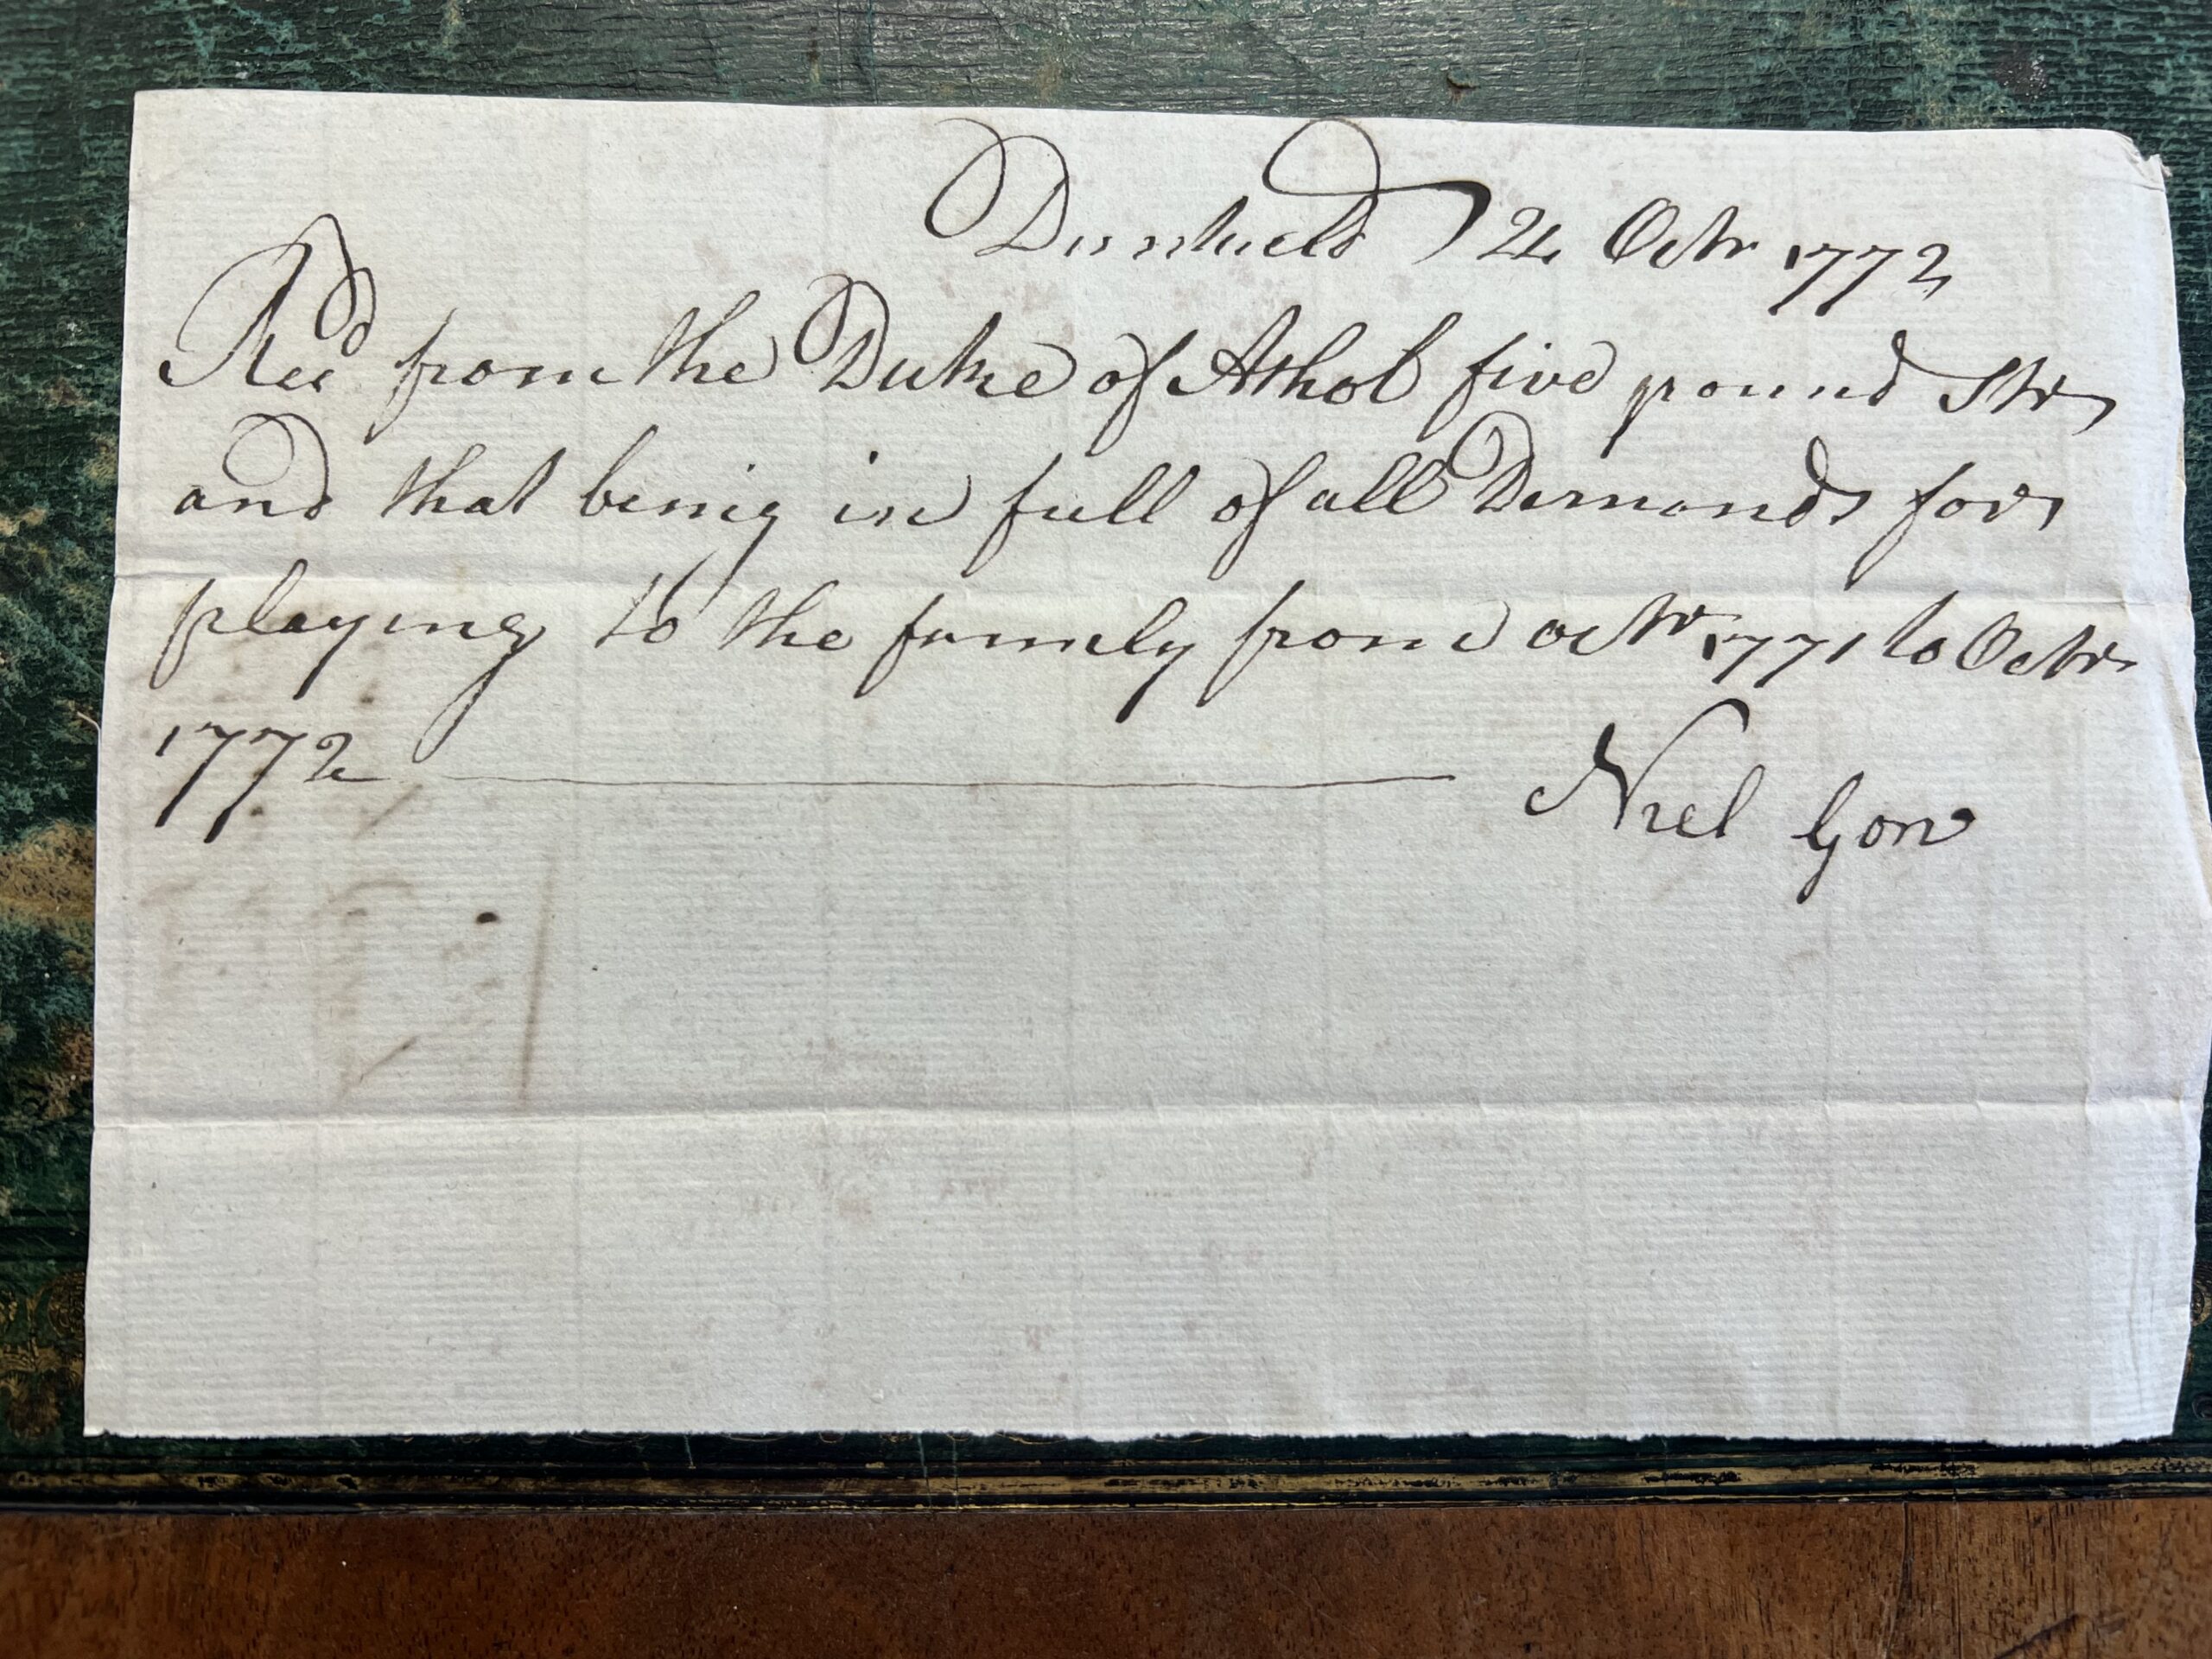 Dunkeld 24 Octr 1772
Recd from the Duke of Athol five pound Str
and that being in full of all Demands for
playing to the famely from octr 1771 to Octr
1772 Niel Gow